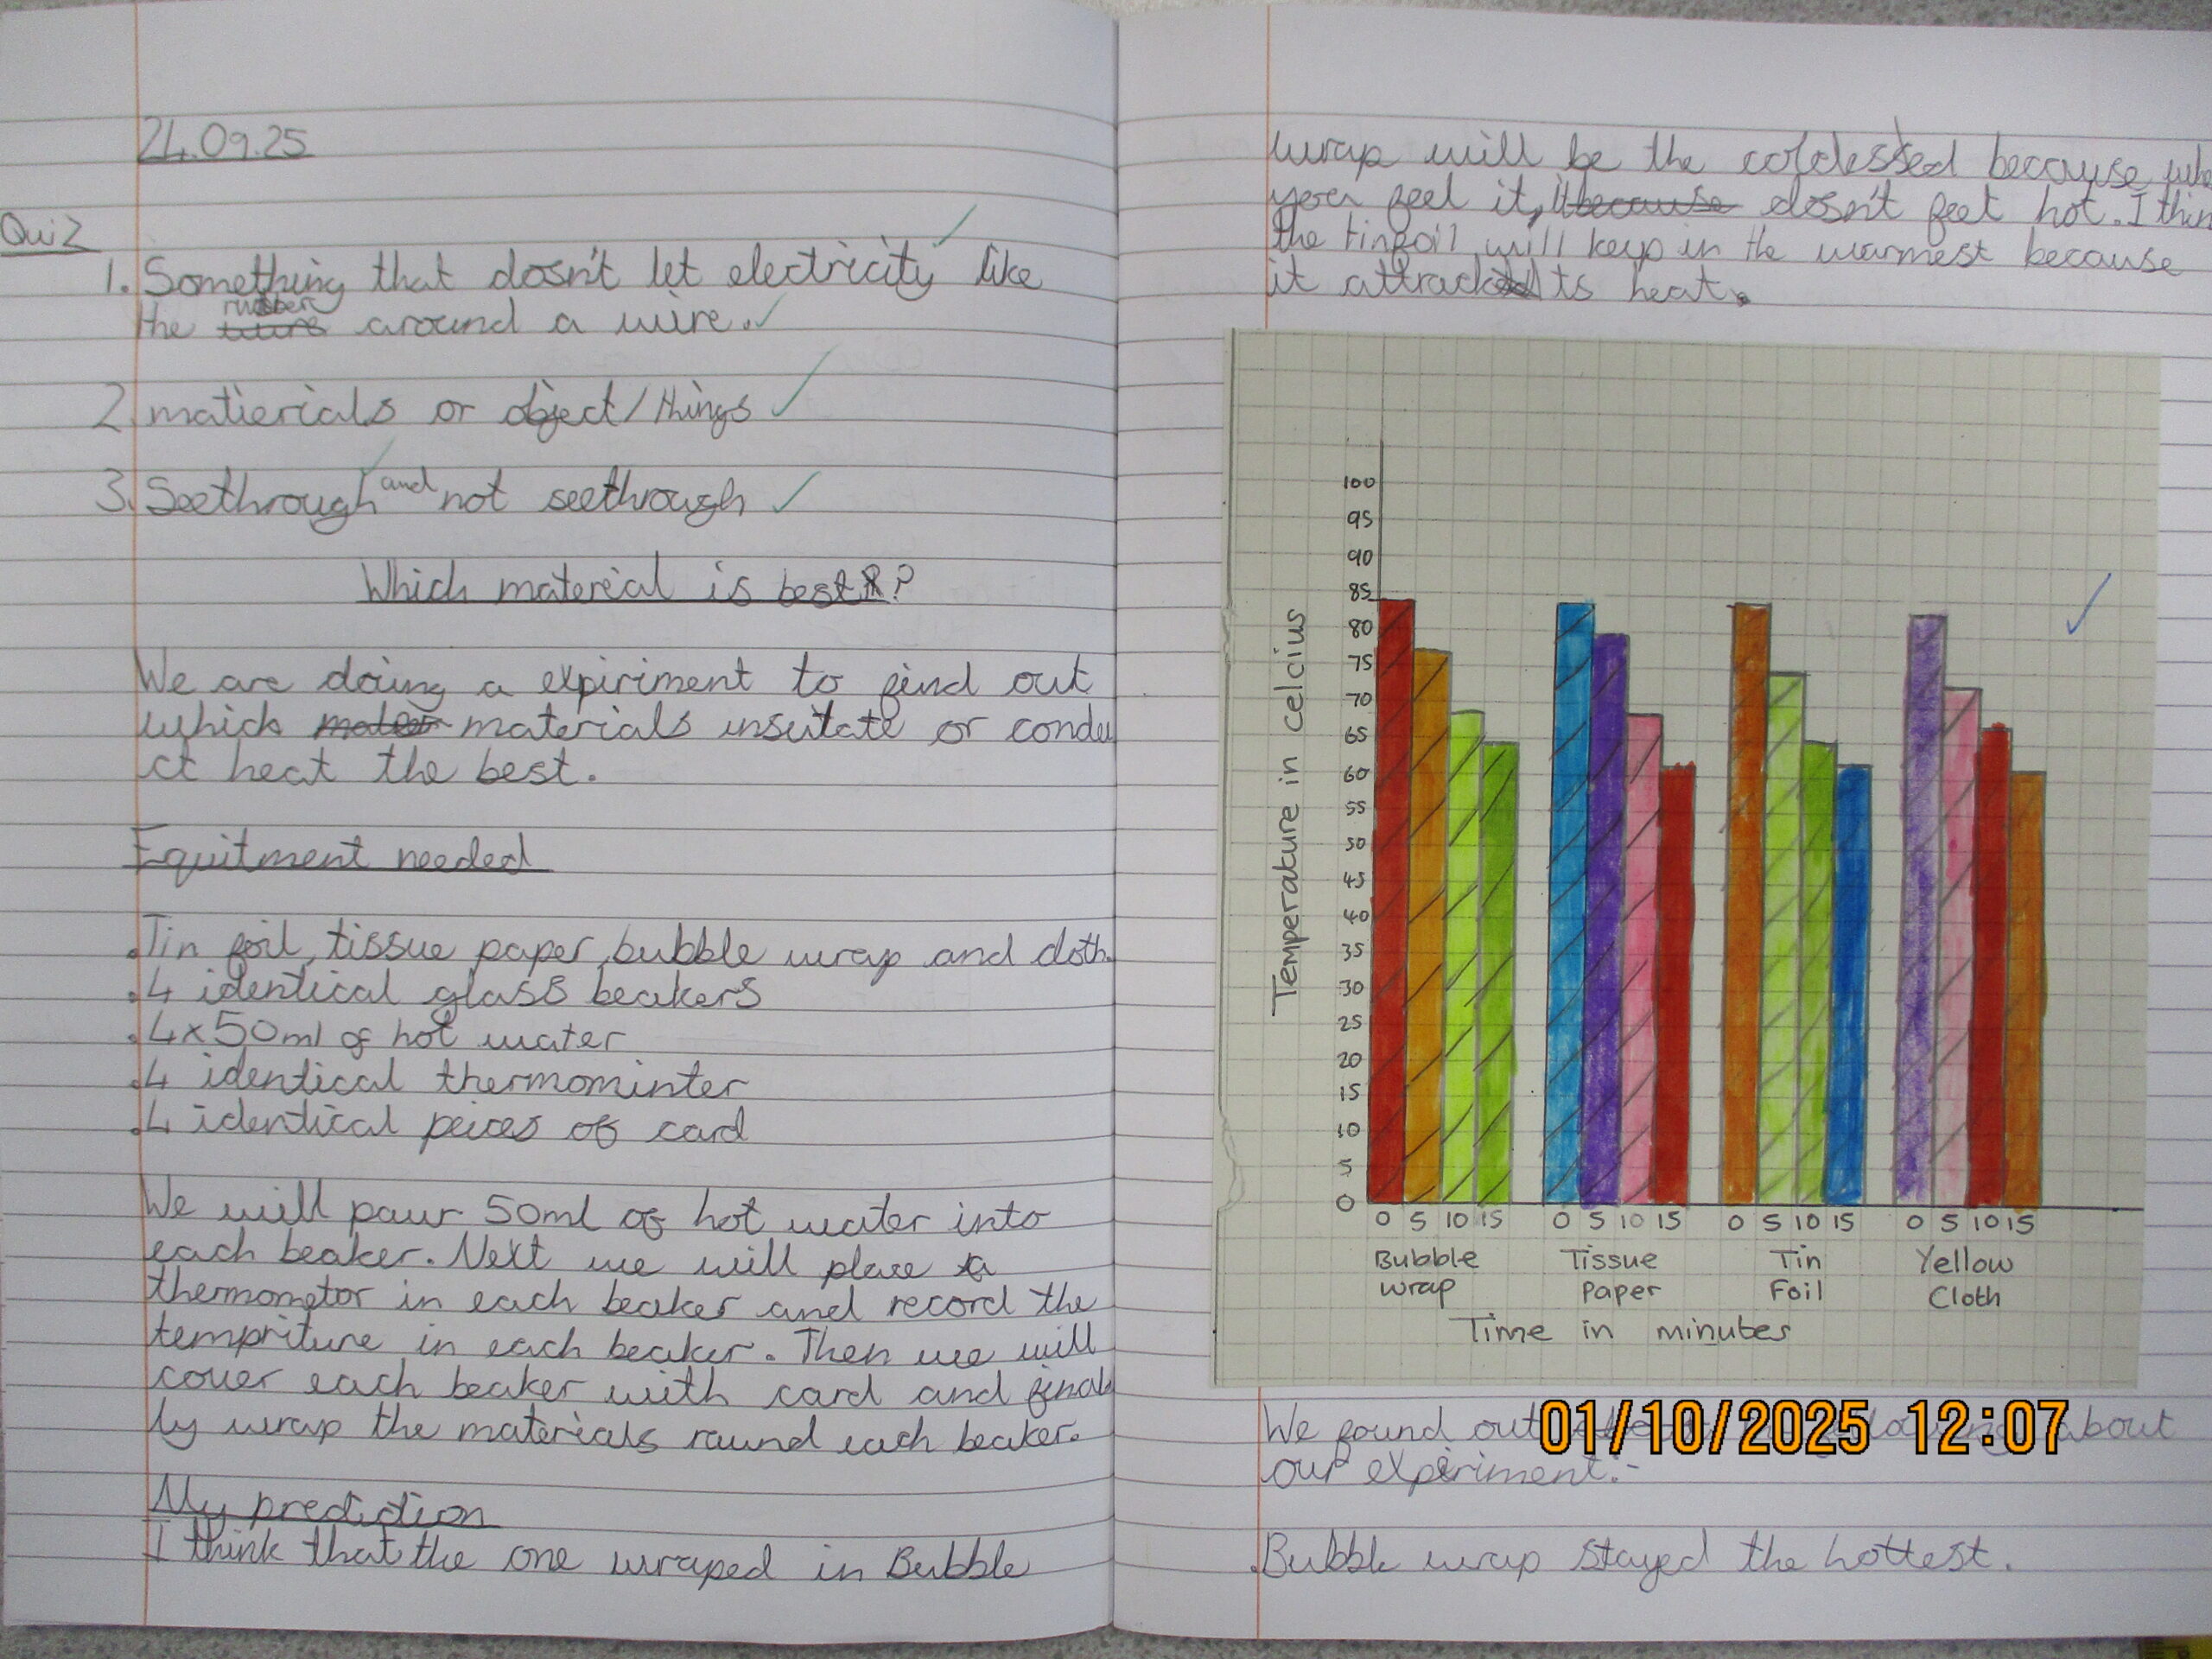 24.09.25
Quiz
1. Something that dosn't let electricity like
the rubber around a wire.
2. matierials or object/things
3. Seethrough and not seethrough
Which material is best?
We are doing a expiriment to find out
which materials insulate or condu
ct heat the best.
Equitment needed
. Tin foil, tissue paper, bubble wrap and cloth.
. 4 identical glass beakers
. 4x50ml of hot water
. 4 identical thermominter
. 4 identical peices of card
We will pour 50ml of hot water into
each beaker. Next we will place a
thermometor in each beaker and record the
tempriture in each beaker. Then we will
cover each beaker with card and final
ly wrap the materials round each beaker.
My prediction
I think that the one wraped in Bubble
wrap will be the coldessed because
you feel it, it dosn't feel hot. I
the tinfoil will keep in the warmest because
it attracts heat.
100
95
90
85
80
75
70
65
60
55
50
45
40
35
30
25
20
15
10
5
0
Temperature in celcius
0 5 10 15 0 5 10 15 0 5 10 15 0 5 10 15
Bubble Tissue Tin Yellow
wrap Paper Foil Cloth
Time in minutes
We found out about
our expiriment:-
01/10/2025 12:07
. Bubble wrap stayed the hottest.